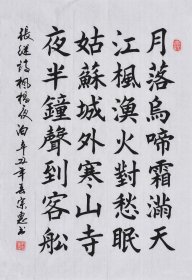 月落烏啼霜滿天
江楓漁火對愁眠
姑蘇城外寒山寺
夜半鐘聲到客船
張继詩楓橋夜泊辛丑年春宗惠書